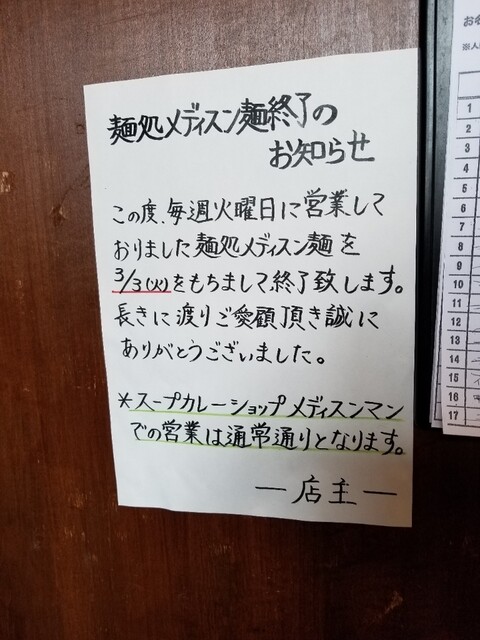 麺処メディスン麺終了の
お知らせ
この度、毎週火曜日に営業して
おりました麺処メディスン麺を
3/3(火)をもちまして終了致します。
長きに渡りご愛顧頂き誠に
ありがとうございました。
*スープカレーショップメディスンマン
での営業は通常通りとなります。
―店主―
お名
※人
1
2
3
4
5
6
7
8
9
10
11
12
13
14
15
16
17